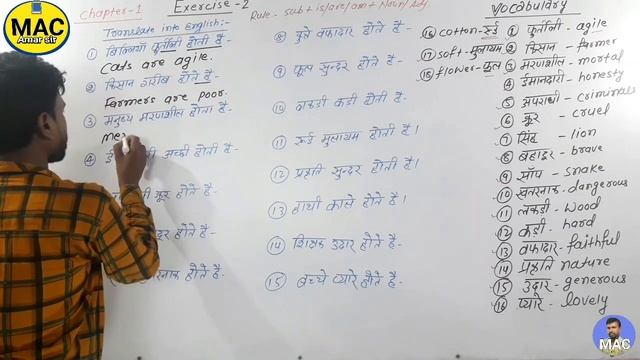 MAC
Amar sir
Chapter-1 Exercise-2
Translate into English:-
① बिल्लियाँ फुर्तीली होती है
Cats are agile.
② किसान गरीब होते है-
Farmers are poor.
③ मनुष्य मरणशील होता है-
Me
④ अच्छी होती है-
क्रूर होते है-
होते है-
होते है-
Rule- sub+is/are/am+Noun/Adj.
⑧ कुत्ते वफादार होते है-
⑨ फूल सुन्दर होते है-
⑩ लकड़ी कड़ी होती है-
⑪ रूई मुलायम होती है।
⑫ प्रकृति सुन्दर होती है।
⑬ हाथी काले होते है।
⑭ शिक्षक उदार होते है-
⑮ बच्चे प्यारे होते है-
⑯ cotton-रूई
⑰ soft-मुलायम
⑱ flower-फूल
Vocabulary
① फुर्तीली - agile
② किसान - farmer
③ मरणशील - mortal
④ ईमानदारी - honesty
⑤ अपराधी - criminals
⑥ क्रूर - cruel
⑦ सिंह - lion
⑧ बहादुर - brave
⑨ साँप - snake
⑩ खतरनाक - dangerous
⑪ लकड़ी - wood
⑫ कड़ी - hard
⑬ वफादार - faithful
⑭ प्रकृति nature
⑮ उदार - generous
⑯ प्यारे - lovely
MAC